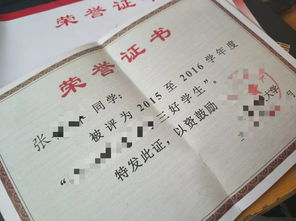 荣誉证
荣誉证书
张 同学：
被评为2015至2016学年度
“ 三好学生”。
特发此证，以资鼓励